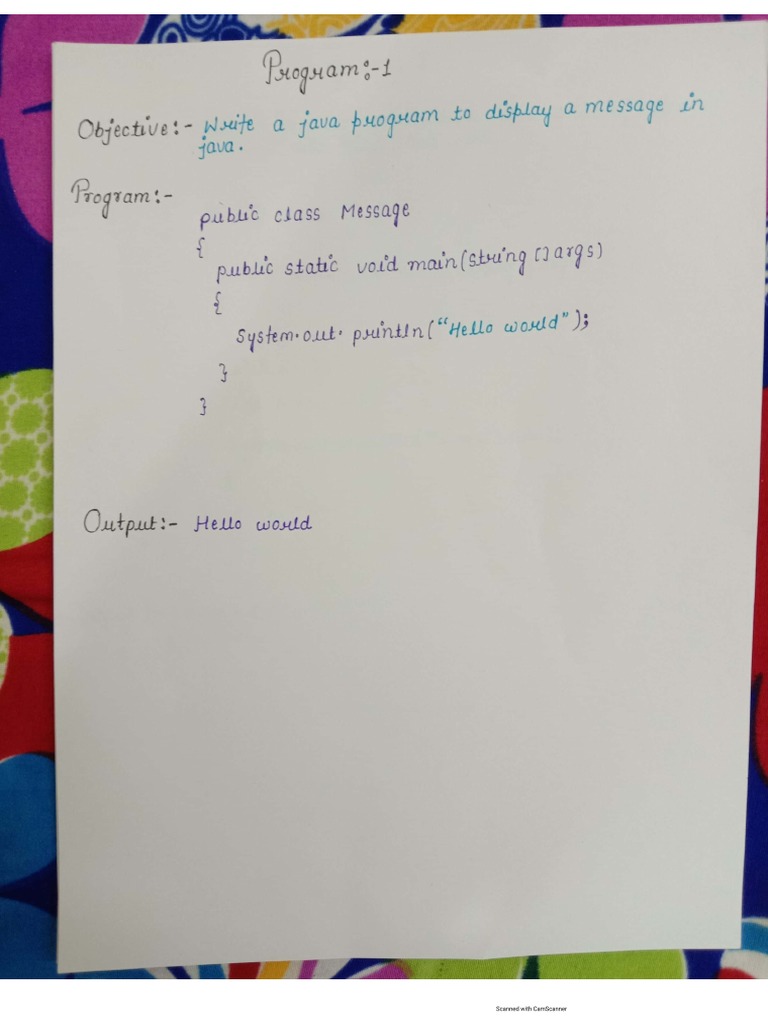 Program:-1
Objective:- Write a java program to display a message in
java.
Program:-
public class Message
{
public static void main(string []args)
{
System.out.println("Hello world");
}
}
Output:- Hello world
Scanned with CamScanner